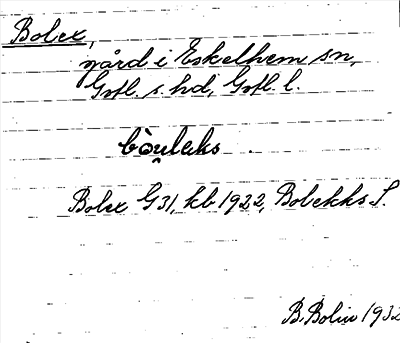 Bolex,
gård i Eskelhem sn,
Gotl. s. hd, Gotl. l.
bòu̯leks.
Bolex G 31, kb 1922, Bolekks S.
B. Bolin 1932